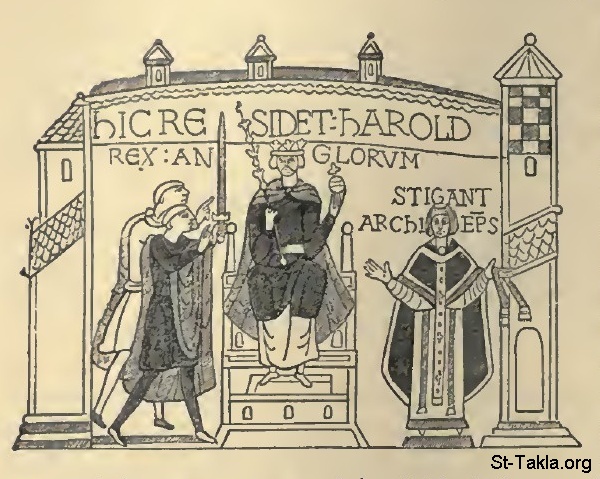 hIC RESIDET:hAROLD
REX:ANGLORVM
STIGANT
ARCHIEP̅S
St-Takla.org